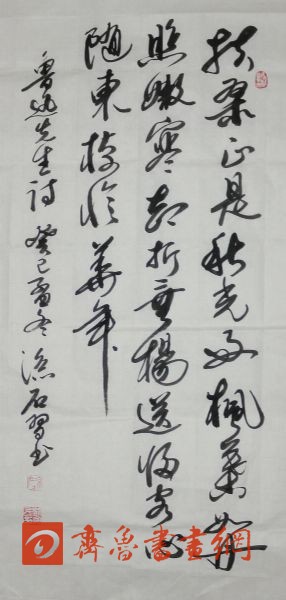 扶桑正是秋光好楓葉如丹
照嫩寒却折垂楊送归客心
随東棹忆華年
魯迅先生詩 癸巳冬 石習书
齊魯書畫網